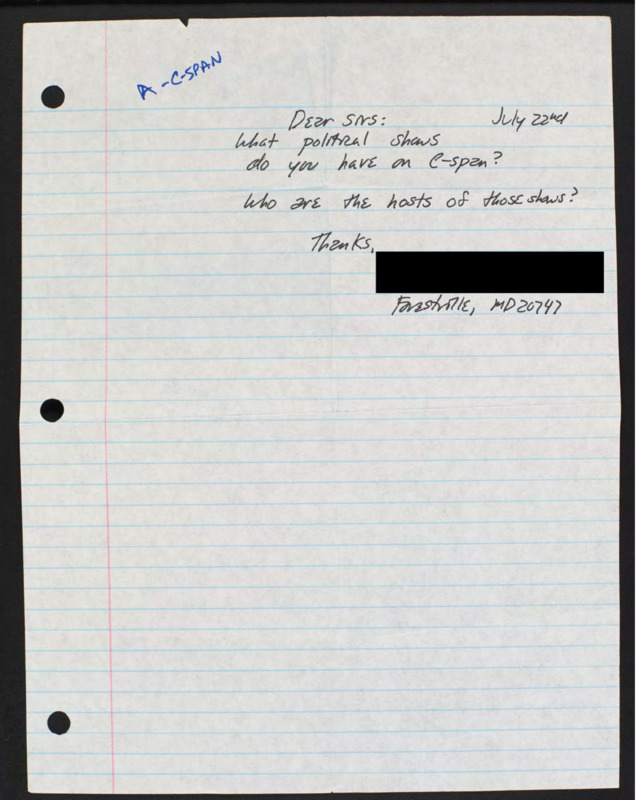 A-C-SPAN
Dear Sirs: July 22nd
What political shows
do you have on C-span?
Who are the hosts of those shows?
Thanks,
Forestville, MD 20747